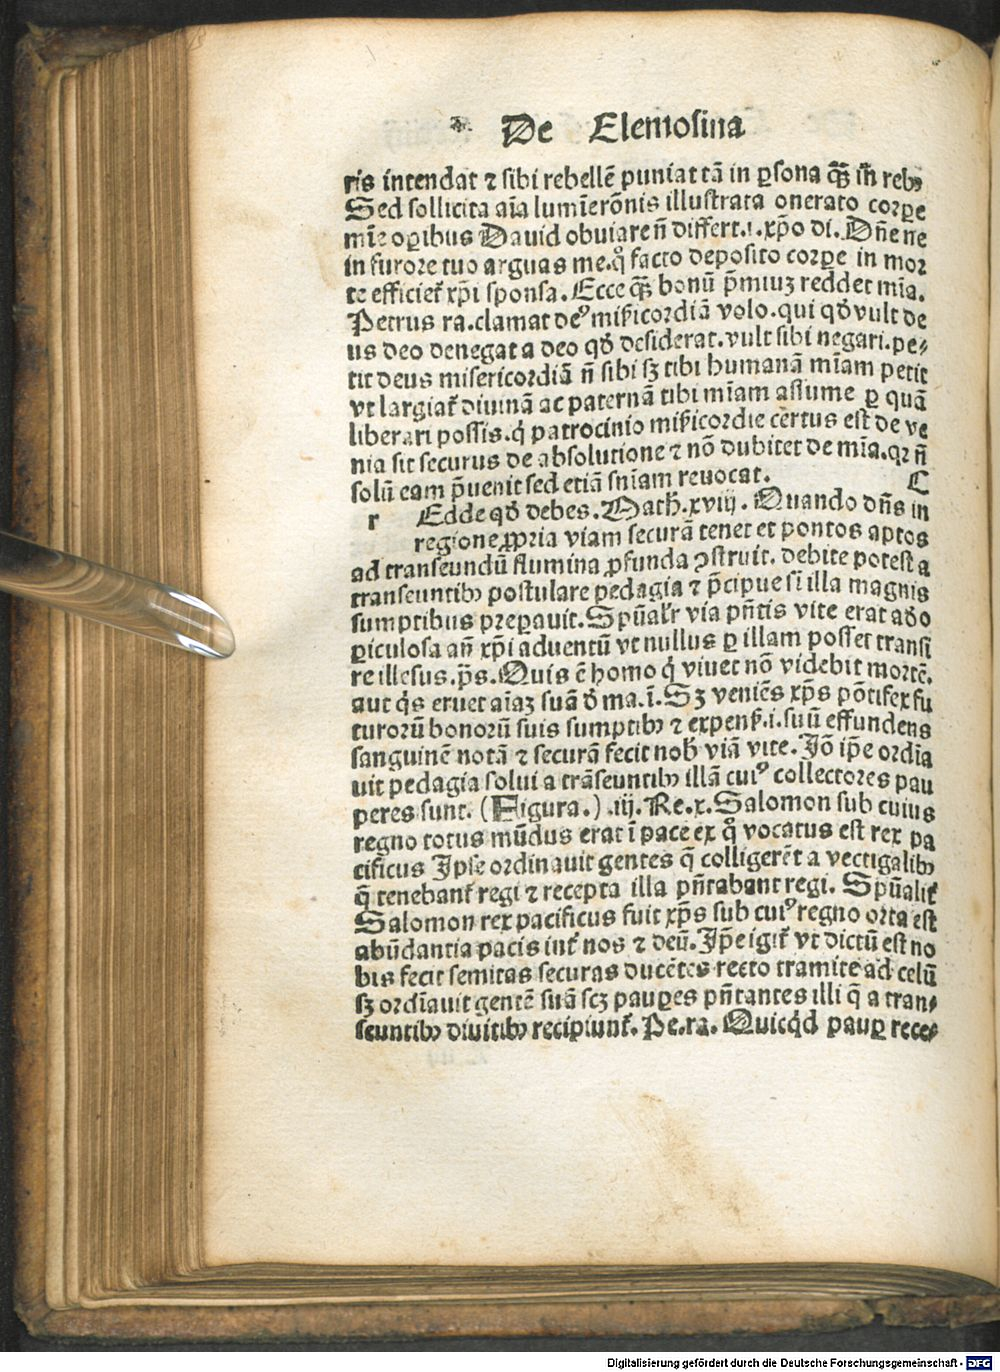 De Elemosina
ris intendat ⁊ sibi rebellē puniat tā in ꝑsona qͣꝫ in rebꝫ
Sed sollicita aīa lumīe rōnis illustrata onerato corꝑe
mīe oꝑibus Dauid obuiare n̄ differt .i. xp̄o di. Dn̄e ne
in furore tuo arguas me. qͦ facto deposito corꝑe in mor
te efficiet᷑ xp̄i sponsa. Ecce qͣꝫ bonū p̄miuꝫ reddet mīa.
Petrus ra. clamat deꝰ mi㏑icordiā volo. qui qď vult de
us deo denegat a deo qď desiderat. vult sibi negari. pe⸗
tit deus misericordiā n̄ sibi sꝫ tibi humanā mīam petit
vt largiat᷑ diuinā ac paternā tibi mīam assume ꝑ quā
liberari possis. q̇ patrocinio misicordie certus est de ve
nia sit securus de absolutione ⁊ nō dubitet de mīa. qꝛ n̄
solū eam p̄uenit sed etiā sn̄iam reuocat. C
r Edde qď debes. Math̄. xviij. Quando dn̄s in
regione ꝓpria viam securā tenet et pontos aptos
ad transeundū flumina ꝓfunda ꝯstruit. debite potest a
transeuntibꝫ postulare pedagia ⁊ p̄cipue si illa magnis
sumptibus preꝑauit. Spūalr̄ via pn̄tis vite erat adō
ꝑiculosa an̄ xp̄i aduentū vt nullus ꝑ illam posset transi
re illesus. ps̄. Quis ē homo q̇ viuet nō videbit mortē.
aut q̇s eruet aīaꝫ suā ď ma. ī. Sꝫ veniēs xp̄s pōtifex fu
turorū bonorū suis sumptibꝫ ⁊ expens̄. i. suū effundens
sanguinē notā ⁊ securā fecit nob̄ viā vite. Jō ip̄e ordīa
uit pedagia solui a trāseuntibꝫ illā cuiꝰ collectores pau
peres sunt. (Figura.) .iij. Re. x. Salomon sub cuius
regno totus mūdus erat ī pace ex qͦ vocatus est rex pa
cificus Jpse ordinauit gentes q̄ colligerēt a vectigalibꝫ
q̄ tenebant᷑ regi ⁊ recepta illa pn̄tabant regi. Spūalit᷑
Salomon rex pacificus fuit xp̄s sub cuiꝰ regno orta est
abūdantia pacis int᷑ nos ⁊ deū. Jp̄e igit᷑ vt dictū est no
bis fecit semitas securas ducētes recto tramite ad celū
sꝫ ordīauit gentē suā scꝫ pauꝑes pn̄tantes illi q̄ a tran⸗
seuntibꝫ diuitibꝫ recipiunt᷑. Pe. ra. Quicq̇d pauꝑ rece⸗
Digitalisierung gefördert durch die Deutsche Forschungsgemeinschaft - DFG